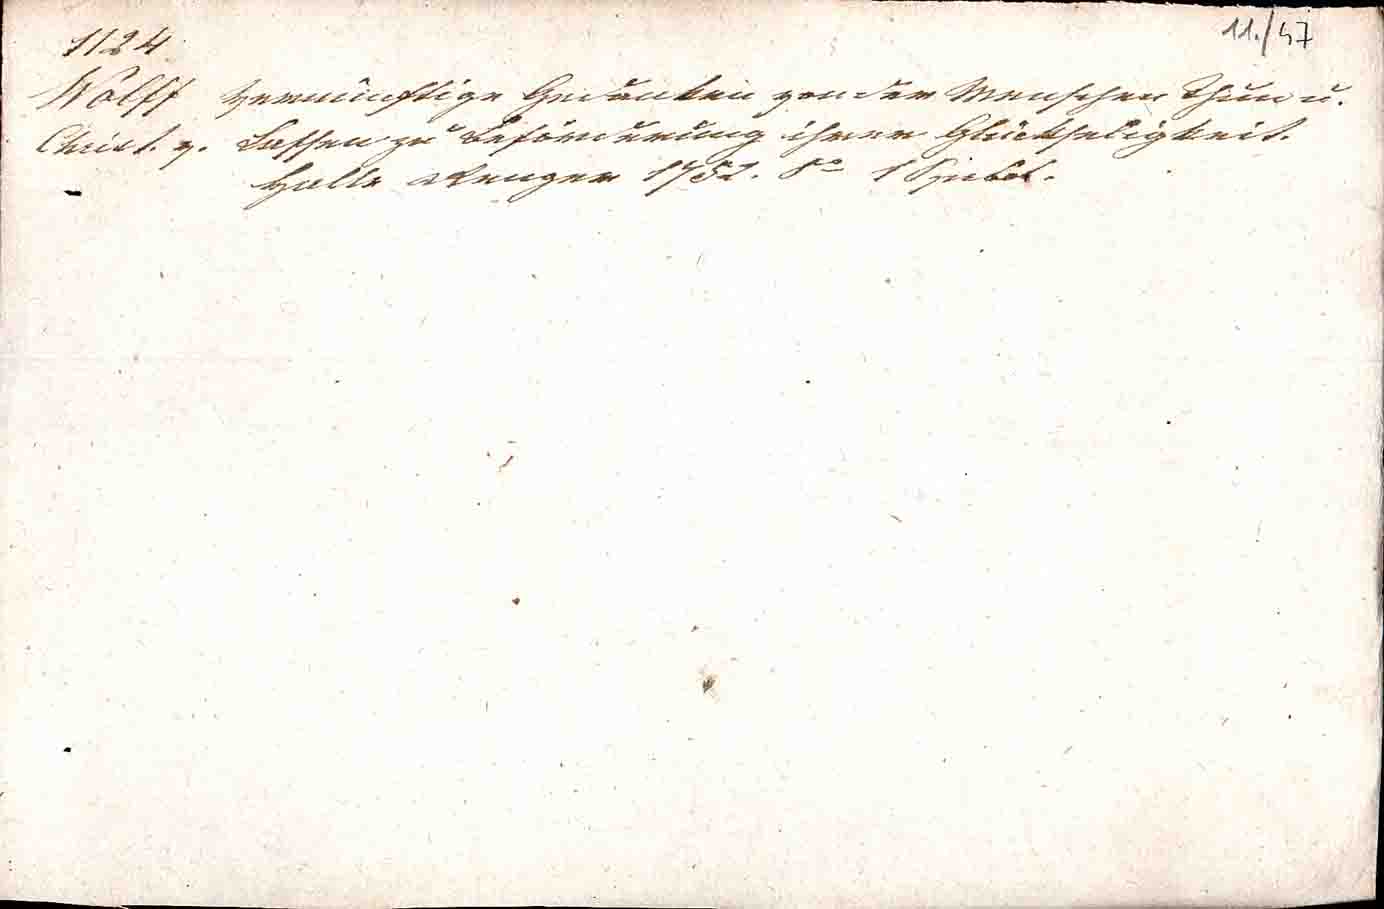 1124.
11./47
Wolff Vernünftige Gedanken von der Menschen Thun u.
Christ. v. Lassen zu Beförderung ihrer Glückseligkeit.
Halle Renger 1752. 8° 1